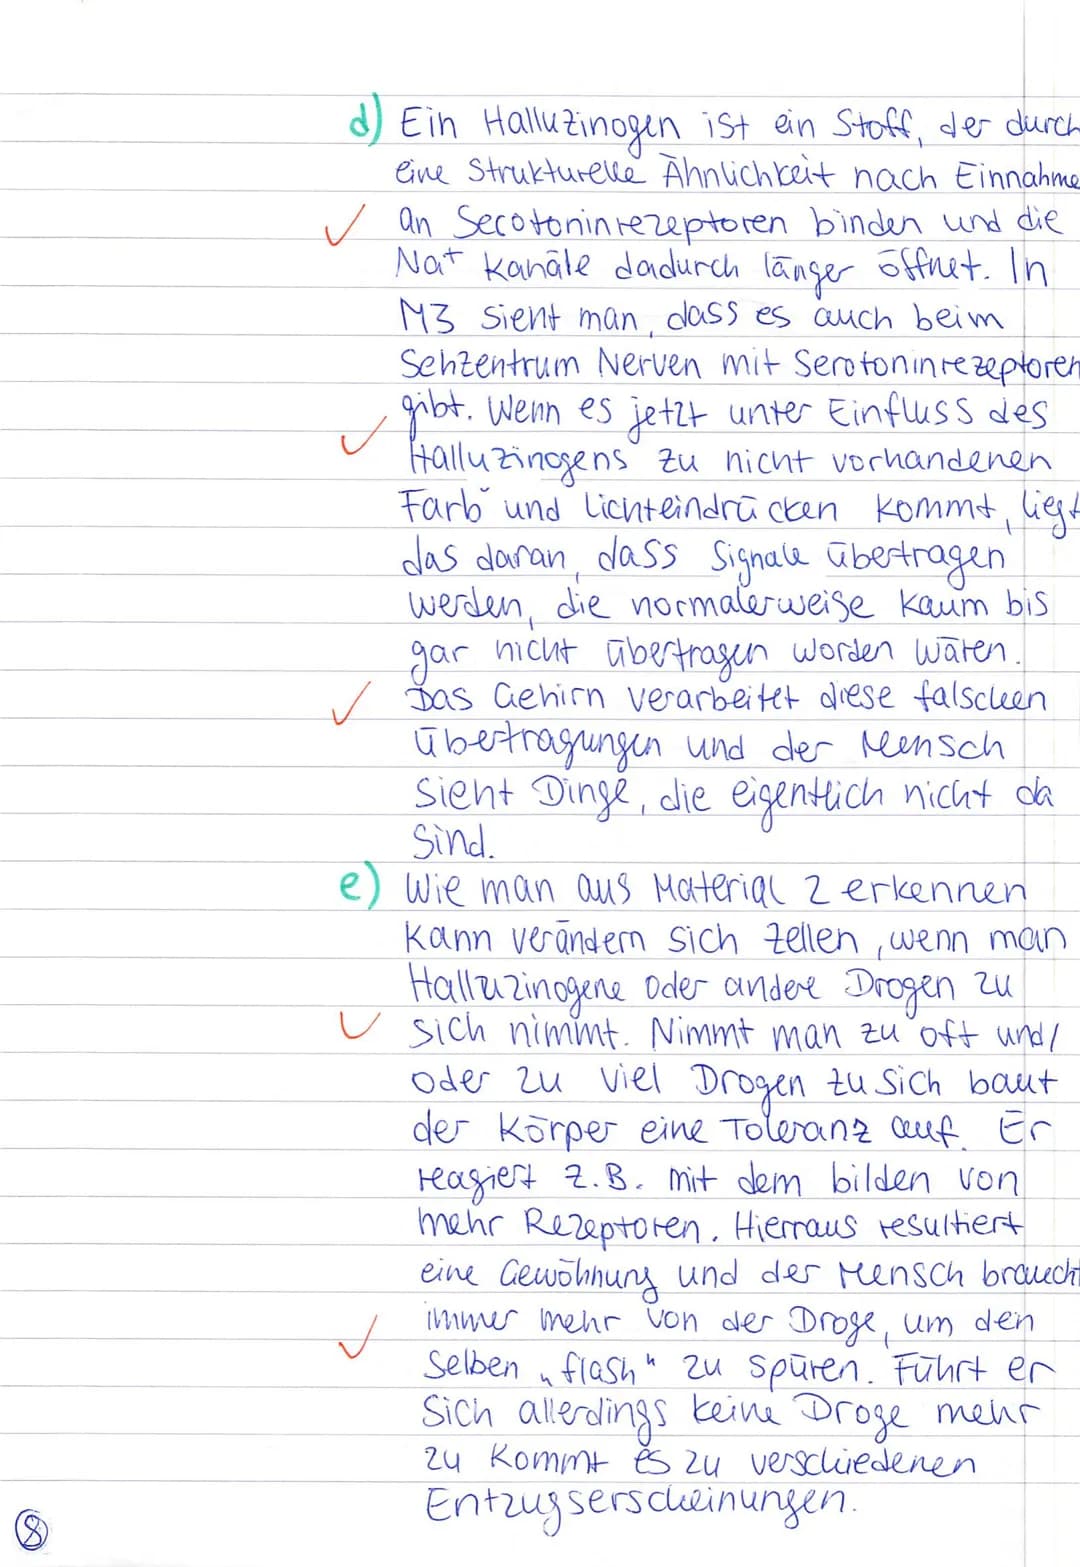 d) Ein Halluzinogen ist ein Stoff, der durch
eine Strukturelle Ähnlichkeit nach Einnahme
an Secotoninrezeptoren binden und die
Na+ Kanäle dadurch länger öffnet. In
M3 sieht man, dass es auch beim
Sehzentrum Nerven mit Serotoninrezeptoren
gibt. Wenn es jetzt unter Einfluss des
Halluzinogens zu nicht vorhandenen
Farb- und Lichteindrücken kommt, liegt
das daran, dass Signale übertragen
werden, die normalerweise kaum bis
gar nicht übertragen worden wären.
Das Gehirn verarbeitet diese falschen
Übertragungen und der Mensch
sieht Dinge, die eigentlich nicht da
sind.
e) Wie man aus Material 2 erkennen
kann verändern sich Zellen, wenn man
Halluzinogene oder andere Drogen zu
sich nimmt. Nimmt man zu oft und/
oder zu viel Drogen zu sich baut
der Körper eine Toleranz auf. Er
reagiert z.B. mit dem bilden von
mehr Rezeptoren. Hierraus resultiert
eine Gewöhnung und der Mensch braucht
immer mehr von der Droge, um den
selben „flash“ zu spüren. Führt er
sich allerdings keine Droge mehr
zu kommt es zu verschiedenen
Entzugserscheinungen.
8